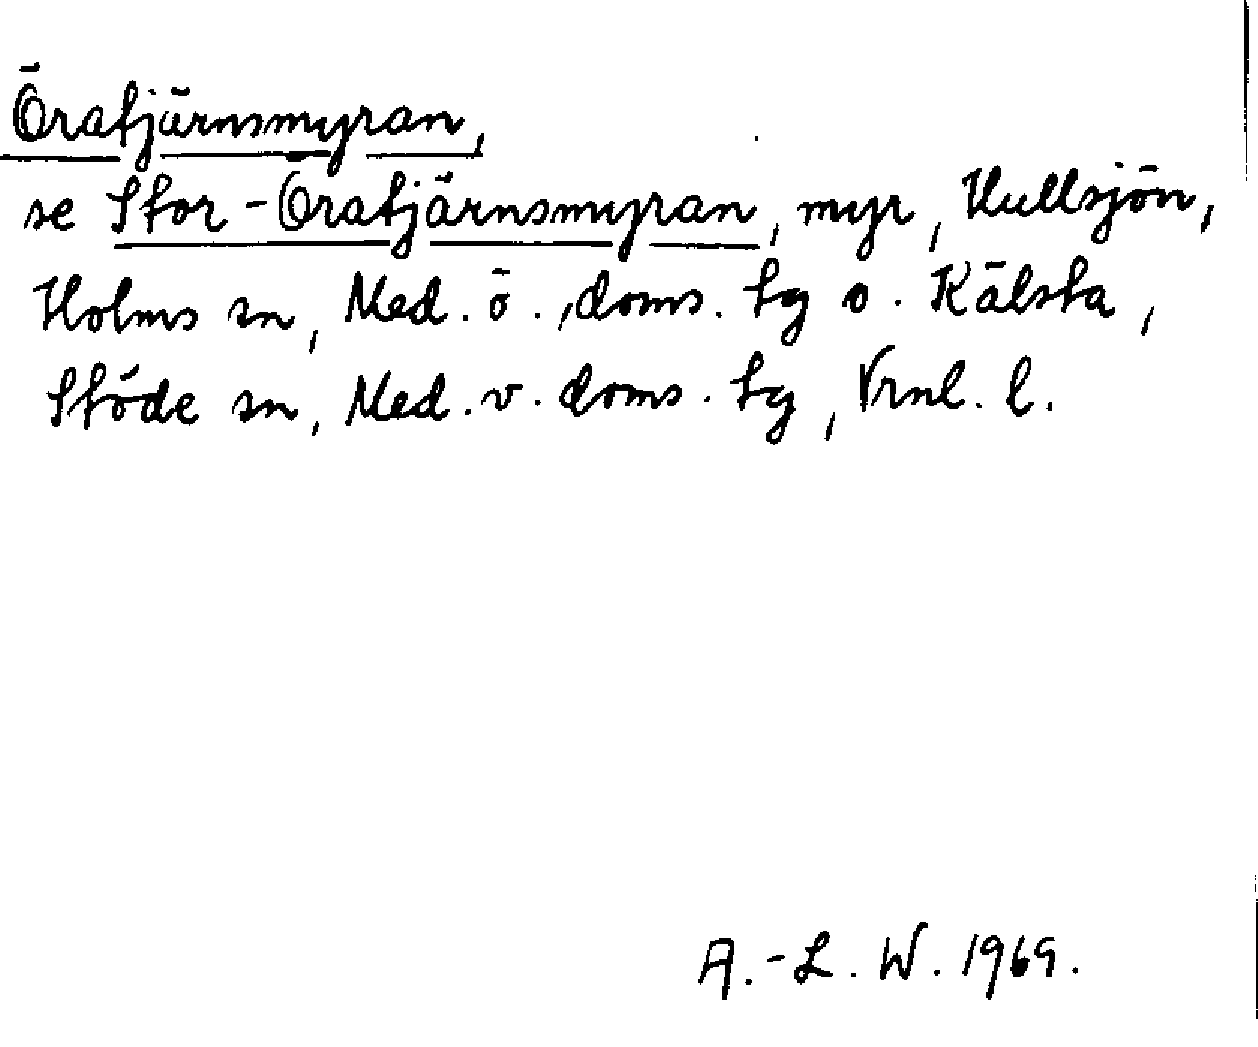 Öratjärnsmyran,
se Stor-Öratjärnsmyran, myr, Hullsjön,
Holms sn, Med. ö., doms. tg o. Kälsta,
Stöde sn, Med. v. doms. tg, Vrnl. l.
A.-L. W. 1969.